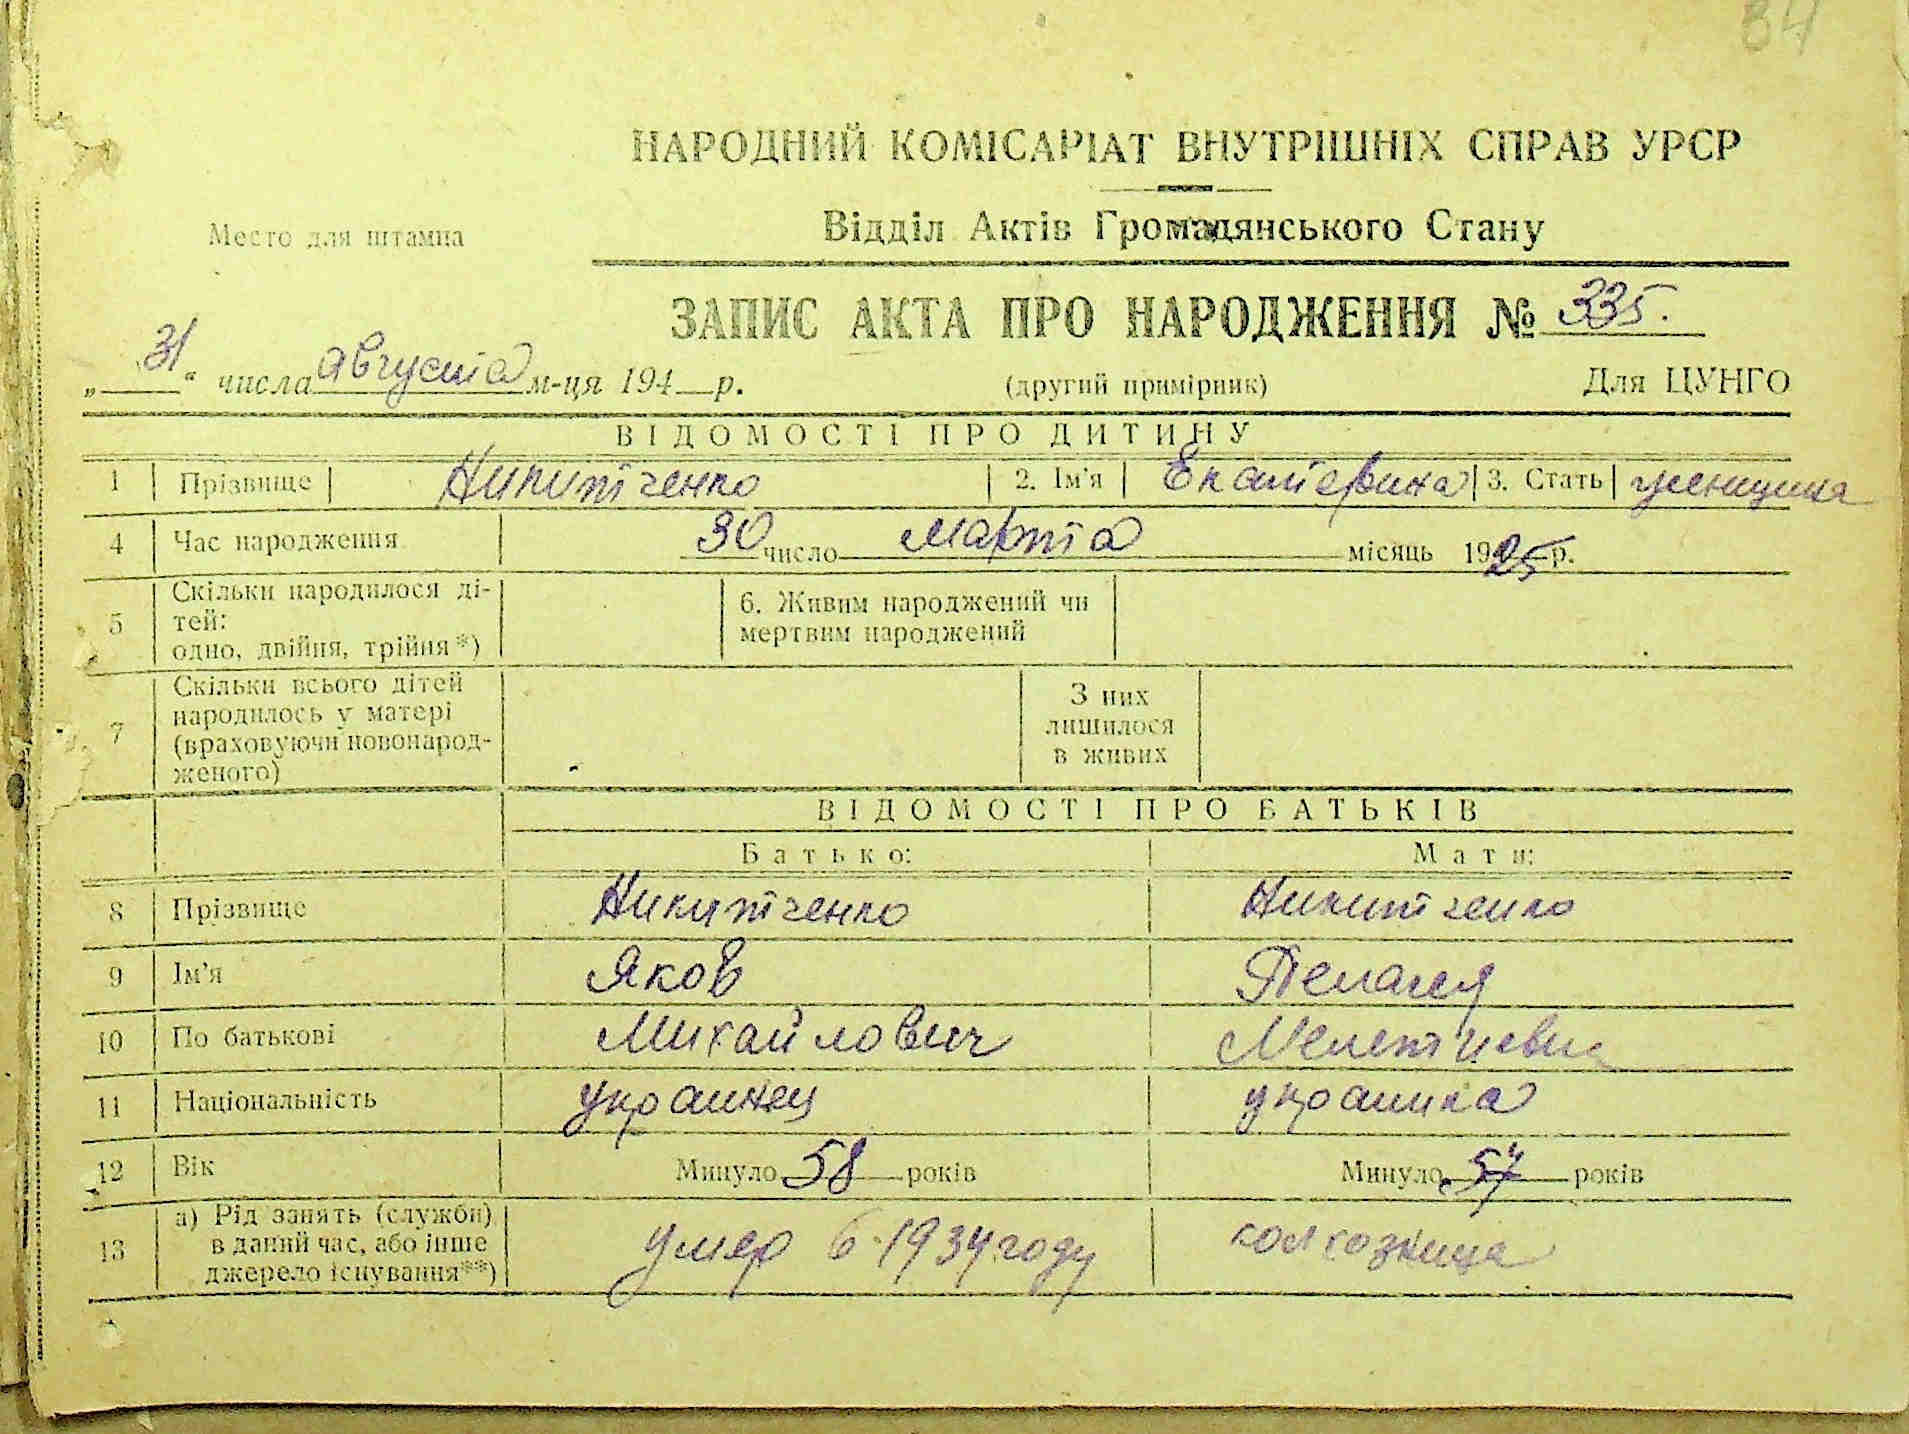 34
НАРОДНИЙ КОМІСАРІАТ ВНУТРІШНІХ СПРАВ УРСР
Место для штампа
Відділ Актів Громадянського Стану
ЗАПИС АКТА ПРО НАРОДЖЕННЯ № 335.
„31“ числа августа м-ця 194 р. (другий примірник) Для ЦУНГО
ВІДОМОСТІ ПРО ДИТИНУ
1 Прізвище Никитченко 2. Ім'я Екатерина 3. Стать женщина
4 Час народження 30 число марта місяць 1925 р.
5 Скільки народилося ді-
тей:
одно, двійня, трійня*)
6. Живим народжений чи
мертвим народжений
7 Скільки всього дітей
народилось у матері
(враховуючи новонарод-
женого)
З них
лишилося
в живих
ВІДОМОСТІ ПРО БАТЬКІВ
Батько: Мати:
8 Прізвище Никитченко Никитченко
9 Ім'я Яков Пелагея
10 По батькові Михайлович Мелетиевна
11 Національність украинец украинка
12 Вік Минуло 58 років Минуло 57 років
13 а) Рід занять (служби)
в даний час, або інше
джерело існування**)
умер в 1934 году колхозница